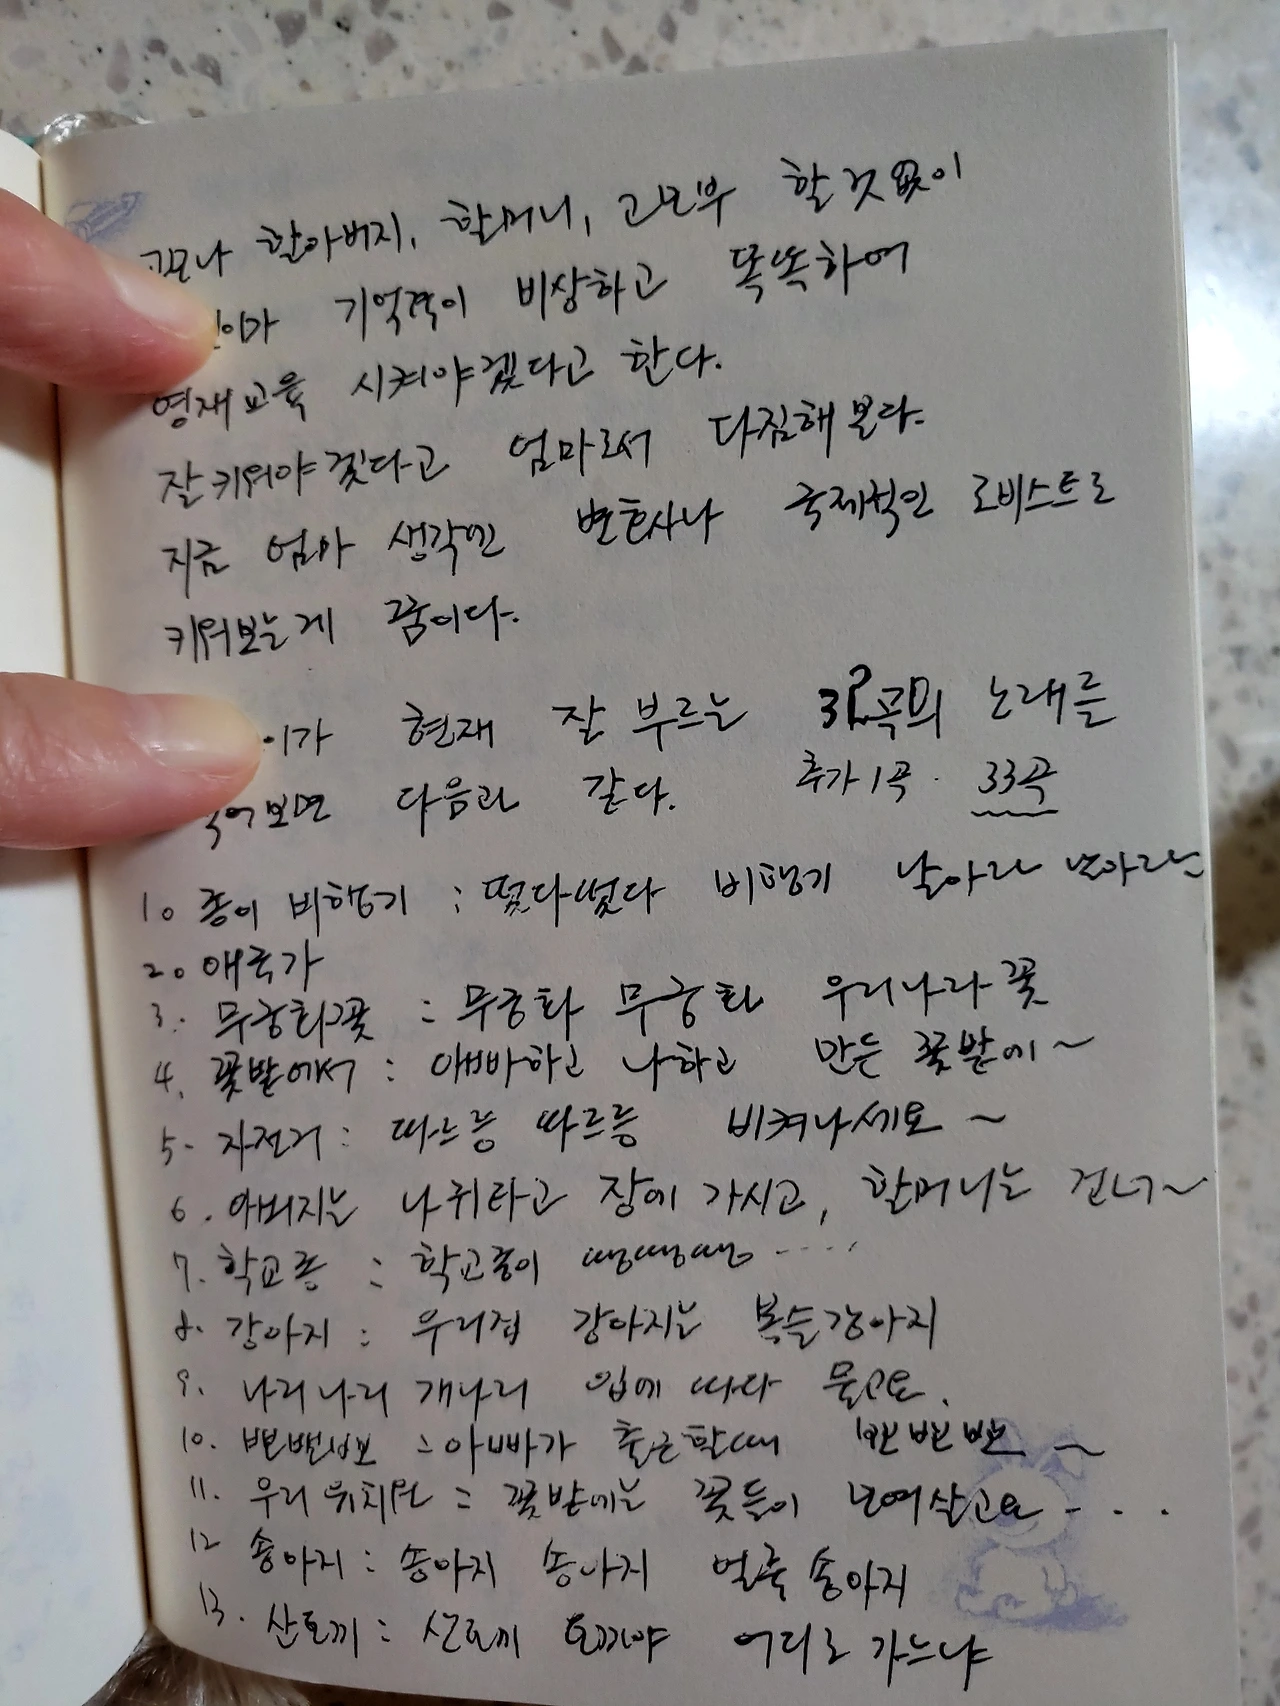 고모나 할아버지, 할머니, 고모부 할것없이
이가 기억력이 비상하고 똑똑하여
영재교육 시켜야겠다고 한다.
잘키워야겠다고 엄마로서 다짐해본다.
지금 엄마 생각엔 변호사나 국제적인 로비스트로
키워보는게 꿈이다.
이가 현재 잘 부르는 32곡의 노래를
적어보면 다음과 같다. 추가1곡. 33곡
1. 종이 비행기 : 떴다떴다 비행기 날아라 날아라~
2. 애국가
3. 무궁화꽃 : 무궁화 무궁화 우리나라꽃
4. 꽃밭에서 : 아빠하고 나하고 만든 꽃밭에~
5. 자전거 : 따르릉 따르릉 비켜나세요~
6. 아버지는 나귀타고 장에 가시고, 할머니는 건너~
7. 학교종 : 학교종이 땡땡땡.....
8. 강아지 : 우리집 강아지는 복슬강아지
9. 나리나리 개나리 입에 따다 물고요.
10. 뽀뽀뽀 : 아빠가 출근할때 뽀뽀뽀~
11. 우리유치원 : 꽃밭에는 꽃들이 모여살고요....
12 송아지 : 송아지 송아지 얼룩송아지
13. 산토끼 : 산토끼 토끼야 어디로 가느냐